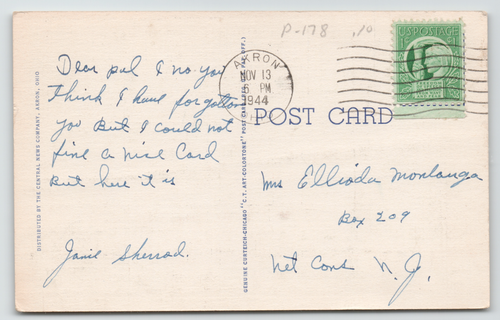 P-178 .10
U.S. POSTAGE
AKRON
NOV 13
6 PM
1944
Dear pal I no you
Think I have forgotten
you But I could not
fine a Nice Card
But here it is
Janie Sherrod.
POST CARD
Mrs Ellioda Montanga
Box 209
Net Cons N. J.
DISTRIBUTED BY THE CENTRAL NEWS COMPANY, AKRON, OHIO
GENUINE CURTEICH-CHICAGO "C.T. ART-COLORTONE" POST CARD (REG. U.S. PAT. OFF.)